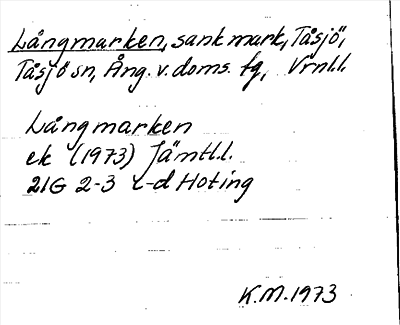 Långmarken, sank mark, Tåsjö,
Tåsjö sn, Ång. v. doms. fg, Vrnl.l.
Långmarken
ek (1973) Jämtl.l.
21G 2-3 c-d Hoting
K.M. 1973